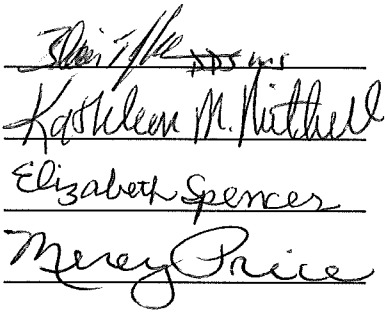 DDS MS
Kathleen M. Mitchell
Elizabeth Spencer
Mercy Price